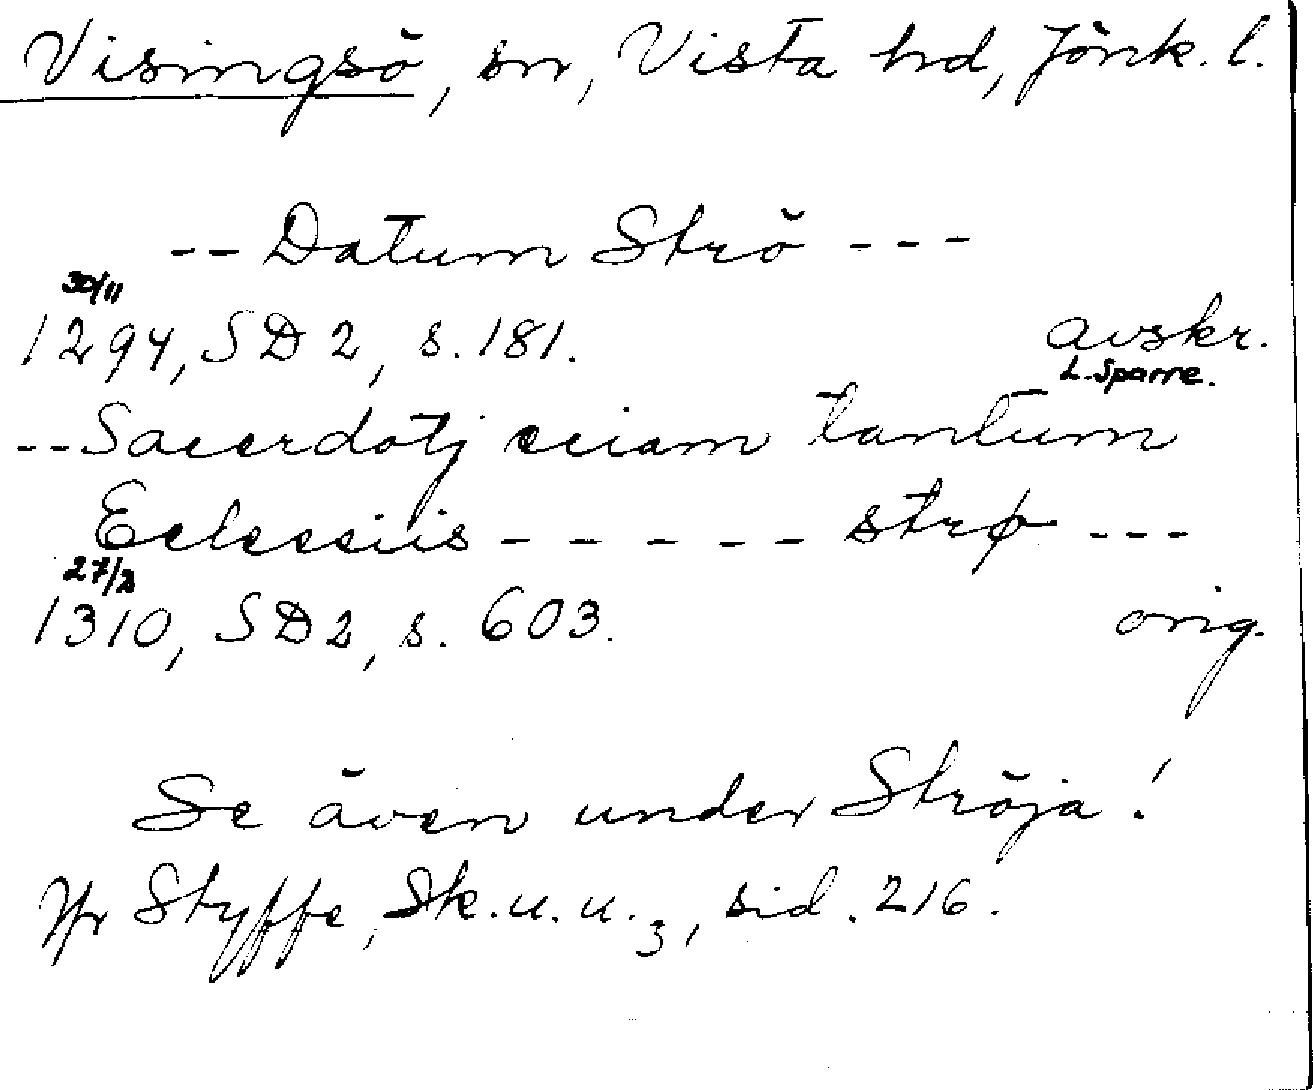 Visingsö, sn, Vista hd, Jönk. l.
-- Datum Strö ---
30/11
1294, SD 2, s. 181. avskr.
L. Sparre.
-- Sacerdotj eciam tantum
Eclesiis - - - - - strø ---
27/2
1310, SD 2, s. 603. orig.
Se även under Ströja!
Jfr Styffe, Sk. u. u. 3, sid. 216.